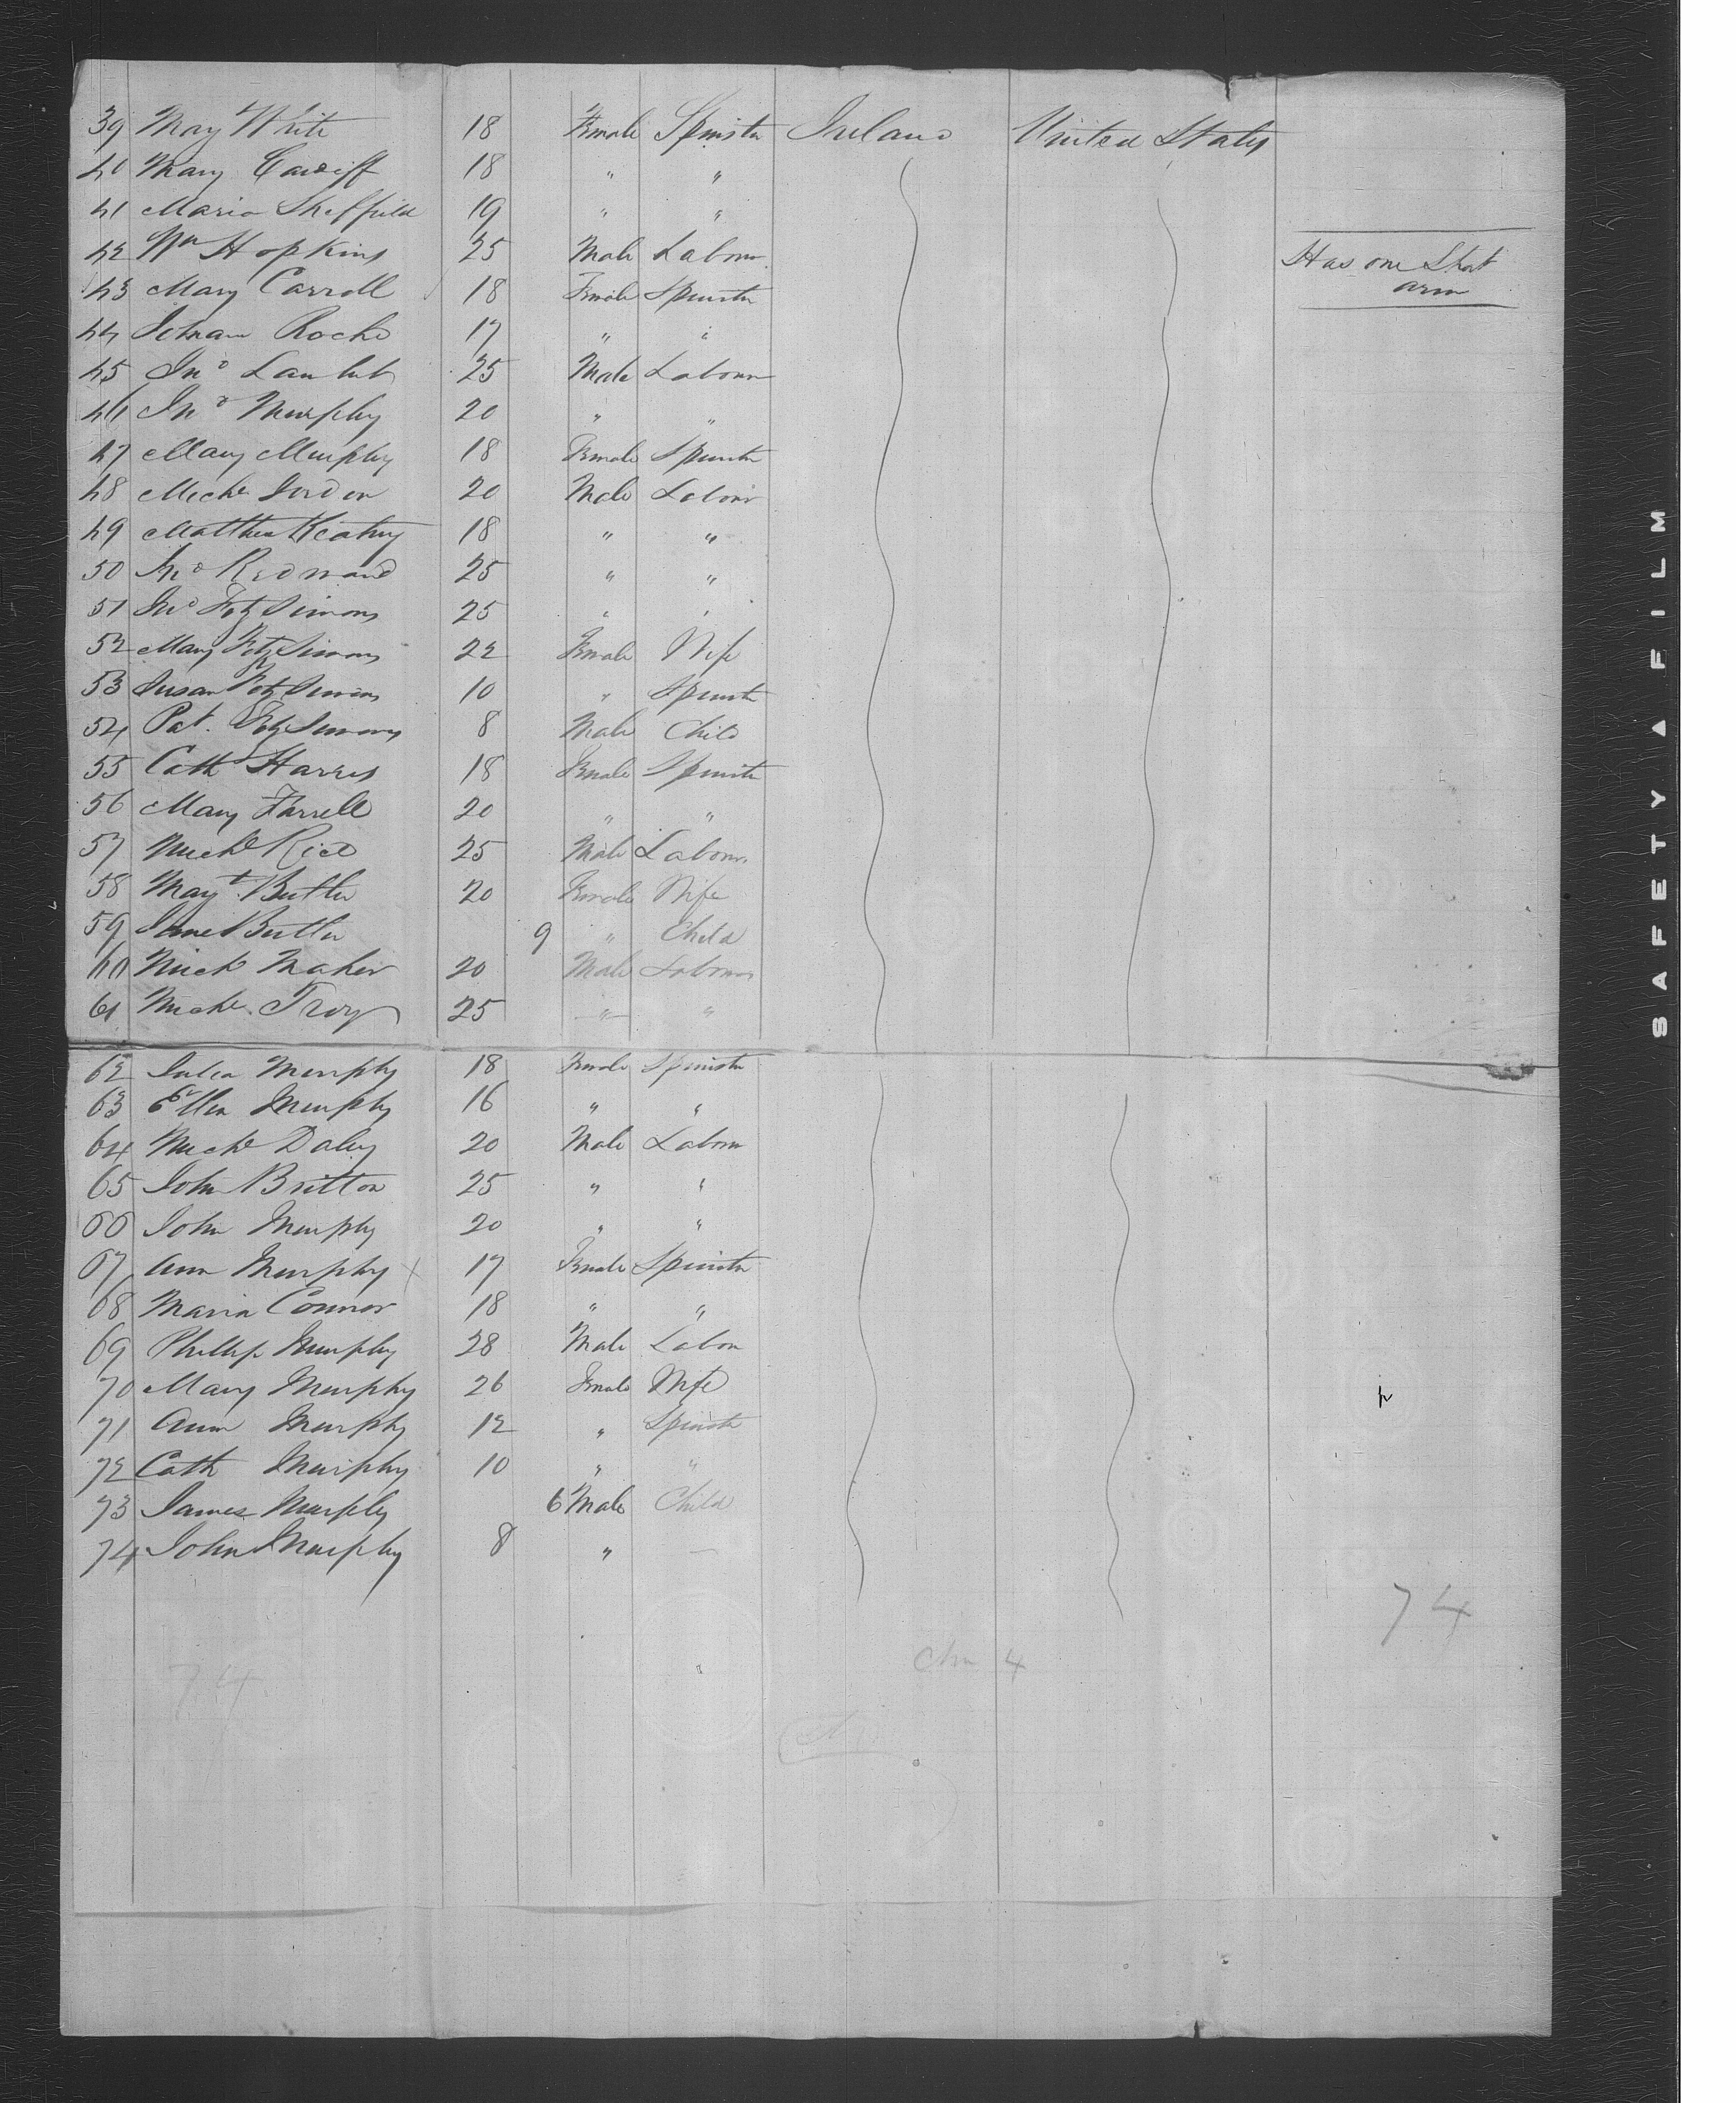 39 Mary White 18 Female Spinster Ireland United States
40 Mary Cardiff 18 " "
41 Maria Sheffield 19 " "
42 Wm Hopkins 25 Male Labour Has one Short arm
43 Mary Carroll 18 Female Spinster
44 Roche 17 " "
45 Jno 25 Male Labour
46 Jno Murphy 20 " "
47 Mary Murphy 18 Female Spinster
48 Michl Jordon 20 Male Labour
49 Matthew Keatny 18 " "
50 Jno Redmond 25 " "
51 Jno Fitz Simons 25 " "
52 Mary Fitz Simons 22 Female Wife
53 Susan Fitz Simons 10 " Spinster
54 Pat. Fitz Simons 8 Male Child
55 Cath Harris 18 Female Spinster
56 Mary Farrell 20 " "
57 Michl Rice 25 Male Labour
58 Mayt Butler 20 Female Wife
59 Jane Butler 9 " Child
60 Mich Maher 20 Male Labour
61 Michl. Troy 25 " "
62 Julia Murphy 18 Female Spinster
63 Ellen Murphy 16 " "
64 Michl Daley 20 Male Labour
65 John Britton 25 " "
66 John Murphy 20 " "
67 Ann Murphy x 17 Female Spinster
68 Maria Connor 18 " "
69 Phillip Murphy 28 Male Labour
70 Mary Murphy 26 Female Wife
71 Ann Murphy 12 " Spinster
72 Cath Murphy 10 " "
73 James Murphy 6 Male Child
74 John Murphy 8 " —
74
Chn 4
74
SAFETY A FILM